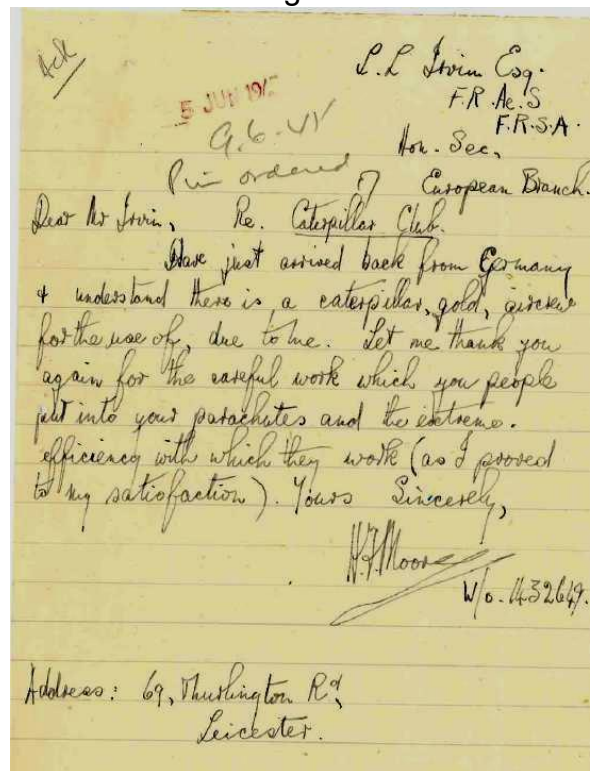 Ack
L.L Irvin Esq.
F.R.Ae.S
F.R.S.A.
5 JUN 194
Hon. Sec,
9.6.
Pin ordered
European Branch.
Dear Mr Irvin, Re. Caterpillar Club.
Have just arrived back from Germany
& understand there is a caterpillar, gold, aircrew
for the use of, due to me. Let me thank you
again for the careful work which you people
put into your parachutes and the extreme.
efficiency with which they work (as I proved
to my satisfaction). Yours Sincerely,
H.F. Moore
W/o. 1432649.
Address: 69, Thurlington Rd,
Leicester.